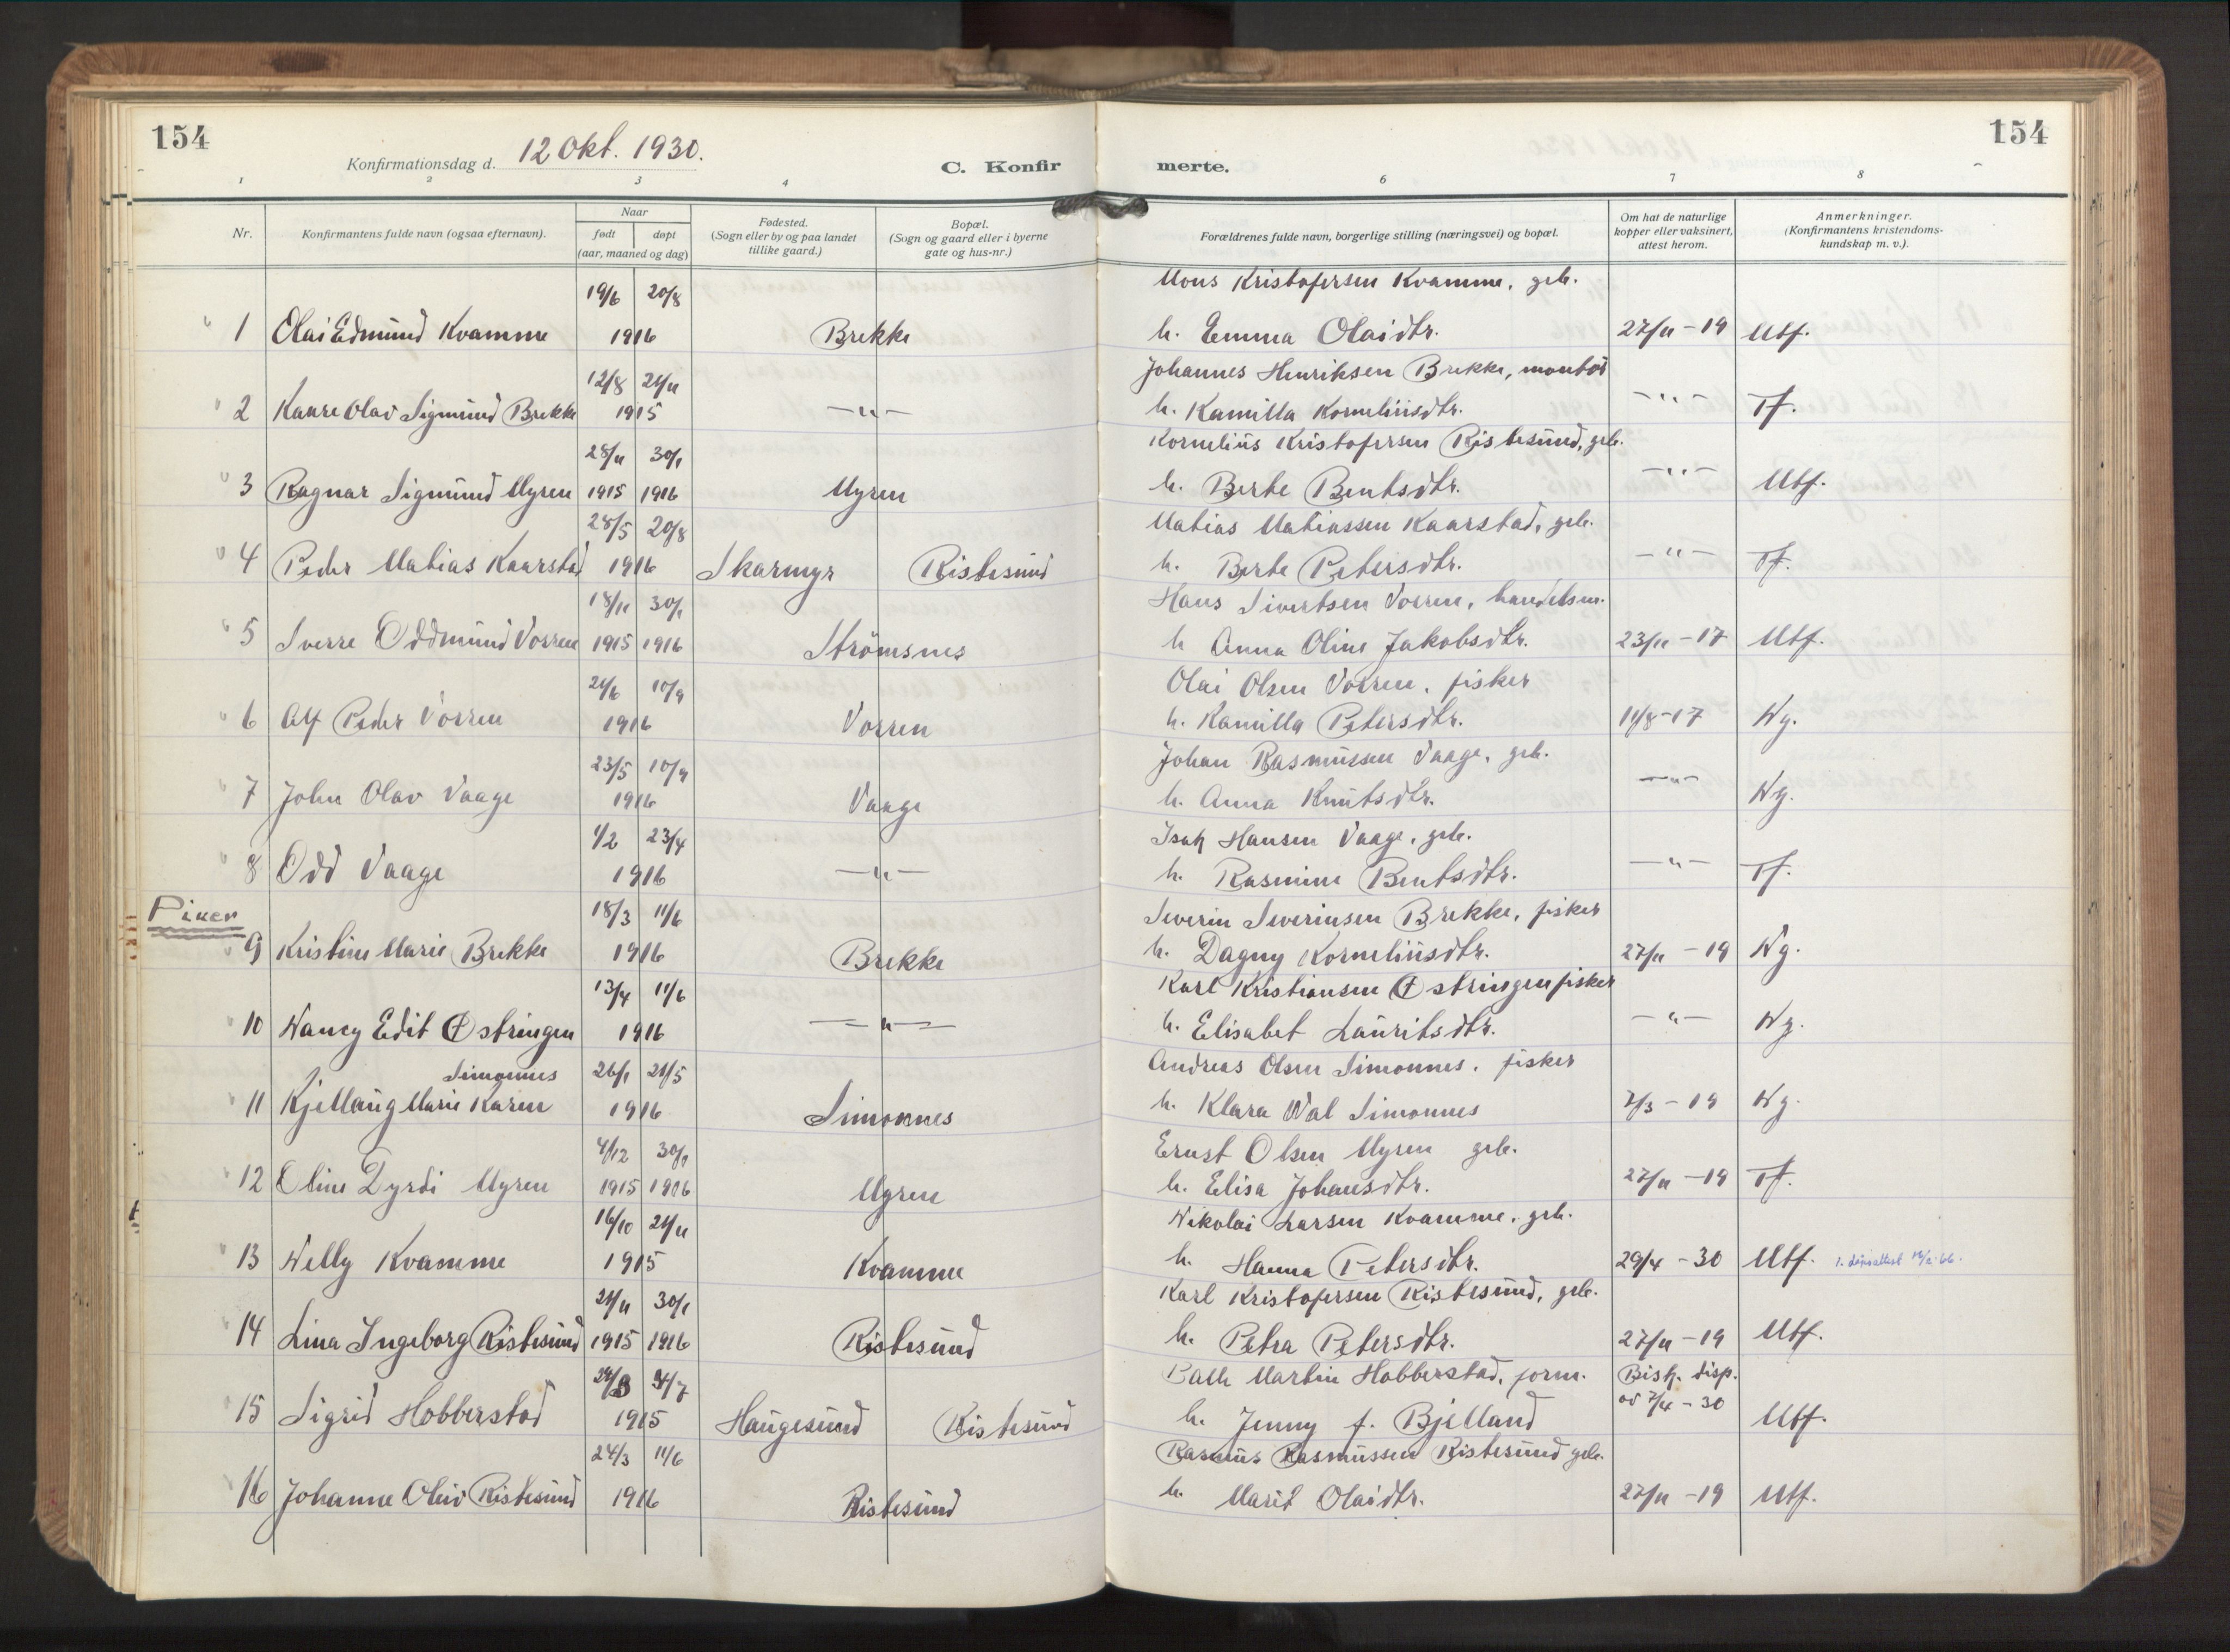 154
Konfirmationsdag d. 12 Okt. 1930.
C. Konfir
merte.
154
1 2 3 4 6 7 8
Nr.
Konfirmantens fulde navn (ogsaa efternavn).
Naar
født døpt
(aar, maaned og dag)
Fødested.
(Sogn eller by og paa landet
tillike gaard.)
Bopæl.
(Sogn og gaard eller i byerne
gate og hus-nr.)
Forældrenes fulde navn, borgerlige stilling (næringsvei) og bopæl.
Om hat de naturlige
kopper eller vaksinert,
attest herom.
Anmerkninger.
(Konfirmantens kristendoms-
kundskap m. v.).
19/6 20/8 Mons Kristofersen Kvamme, grb.
1 Olai Edmund Kvamme 1916 Brekke h. Emma Olaidtr. 27/11 - 19 Mtf.
12/8 21/11 Johannes Henriksen Brekke, montør
2 Kaare Olav Sigmund Brekke 1915 —"— h. Kamilla Korneliusdtr. —"— Tf.
28/11 30/1 Kornelius Kristofersen Ristesund, grb.
3 Ragnar Sigmund Myren 1915 1916 Myren h. Berte Bentsdtr. —"— Mtf.
28/5 20/8 Matias Matiassen Kaarstad, grb.
4 Peder Matias Kaarstad 1916 Skarmyr Ristesund h. Berte Petersdtr. —"— Tf.
18/11 30/1 Hans Sivertsen Vorren, handelsm.
5 Sverre Oddmund Vorren 1915 1916 Strömsnes h Anna Oline Jakobsdtr. 23/11 - 17 Mtf.
21/6 10/9 Olai Olsen Vorren, fisker
6 Alf Peder Vorren 1916 Vorren h. Kamilla Petersdtr. 11/8 - 17 Ng.
23/5 10/9 Johan Rasmussen Vaage, grb.
7 John Olav Vaage 1916 Vaage h. Anna Knutsdtr. —"— Ng.
1/2 23/4 Isak Hansen Vaage, grb.
8 Odd Vaage 1916 —"— h. Rasmine Bentsdtr. —"— Tf.
Piker
18/3 11/6 Severin Severinsen Brekke, fisker
9 Kristine Marie Brekke 1916 Brekke h. Dagny Korneliusdtr. 27/11 - 19 Ng.
13/4 11/6 Karl Kristiansen Østringen fisker
10 Nancy Edit Østringen 1916 —"— h. Elisabet Lauritsdtr. —"— Ng.
Simonnes 26/1 21/5 Andreas Olsen Simonnes, fisker
11 Kjellaug Marie Karen 1916 Simonnes h. Klara Wal Simonnes 7/3 - 19 Ng.
4/12 30/1 Ernst Olsen Myren grb.
12 Oline Dyrdi Myren 1915 1916 Myren h. Elisa Johansdtr. 27/11 - 19 Tf.
16/10 21/11 Nikolai Larsen Kvamme, grb.
13 Nelly Kvamme 1915 Kvamme h. Hanna Petersdtr. 29/4 - 30 Mtf.
21/11 30/1 Karl Kristofersen Ristesund, grb.
14 Lina Ingeborg Ristesund 1915 1916 Ristesund h. Petra Petersdtr. 27/11 - 19 Mtf.
Martin Hobberstad, form. Bisk. disp.
15 Sigrid Hobberstad 1915 Haugesund Ristesund h. Jenny f. Bjelland av 7/4 - 30 Mtf.
24/3 11/6 Rasmus Rasmussen Ristesund grb.
16 Johanne Oliv Ristesund 1916 Ristesund h. Marit Olaidtr. 27/11 - 19 Mtf.